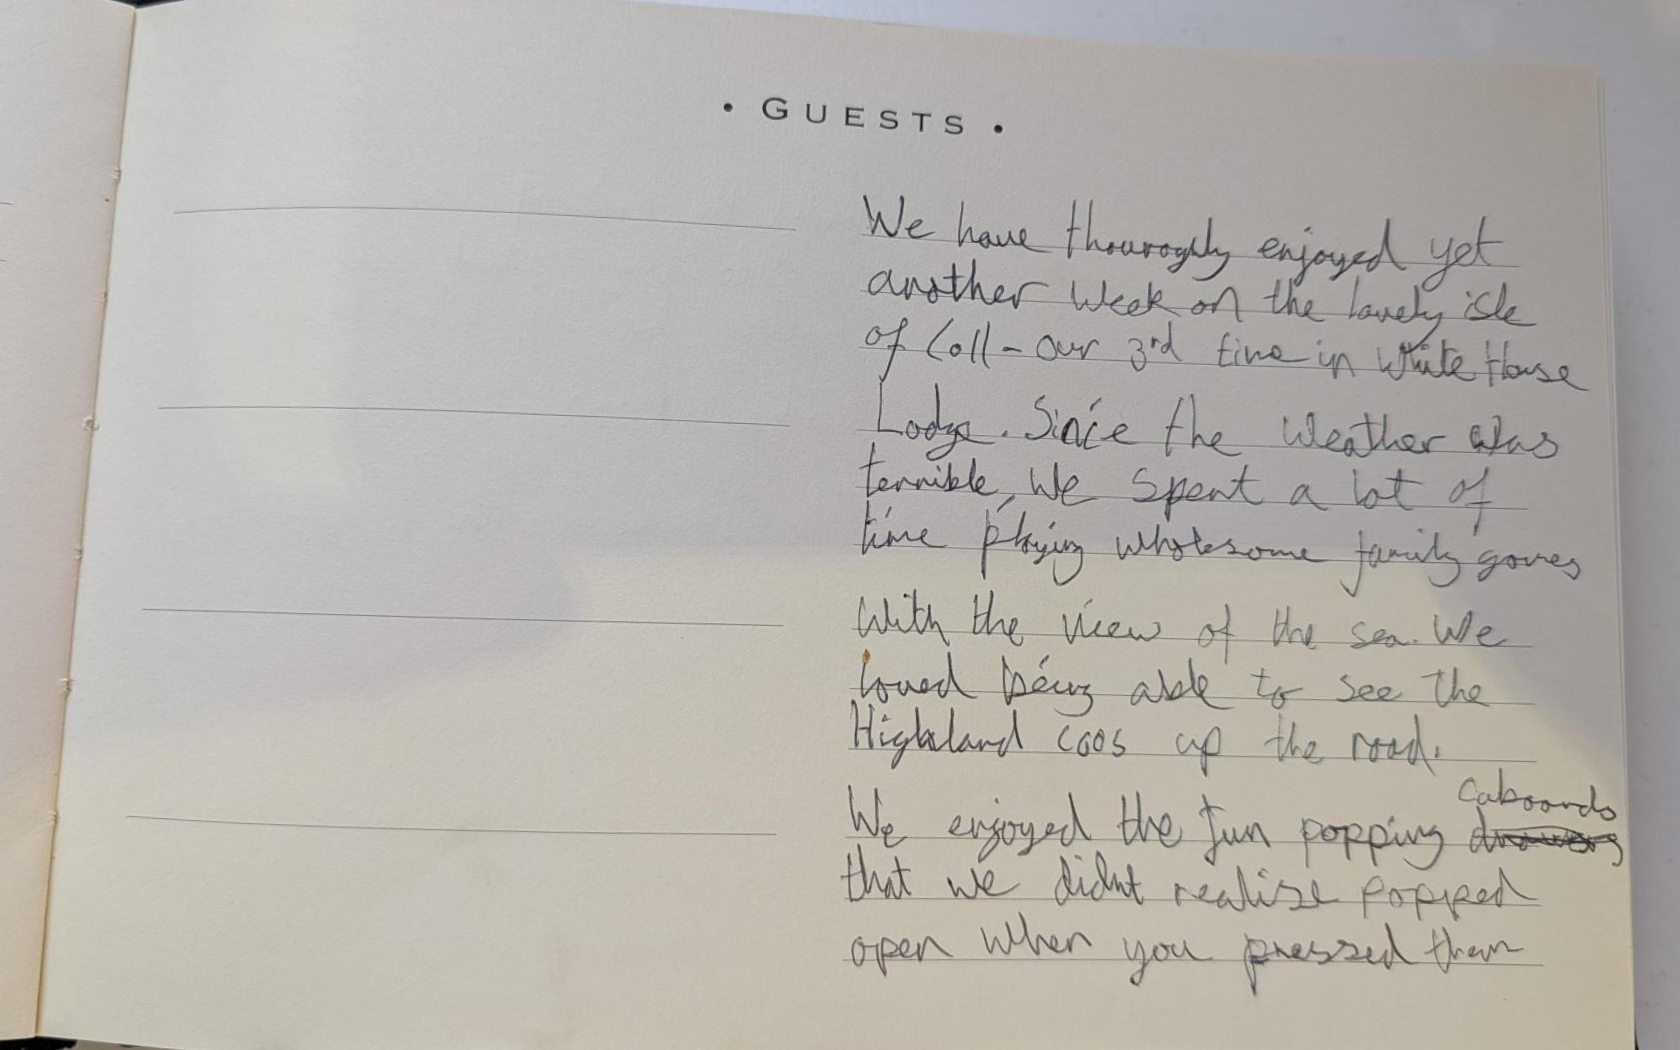 • GUESTS •
We have thouroghly enjoyed yet
another week on the lovely isle
of Coll - our 3rd time in White House
Lodge. Since the weather was
terrible, we spent a lot of
time playing wholesome family games
with the view of the sea. We
loved being able to see the
Highland coos up the road.
caboards
We enjoyed the fun popping drawers
that we didnt realise popped
open when you pressed them